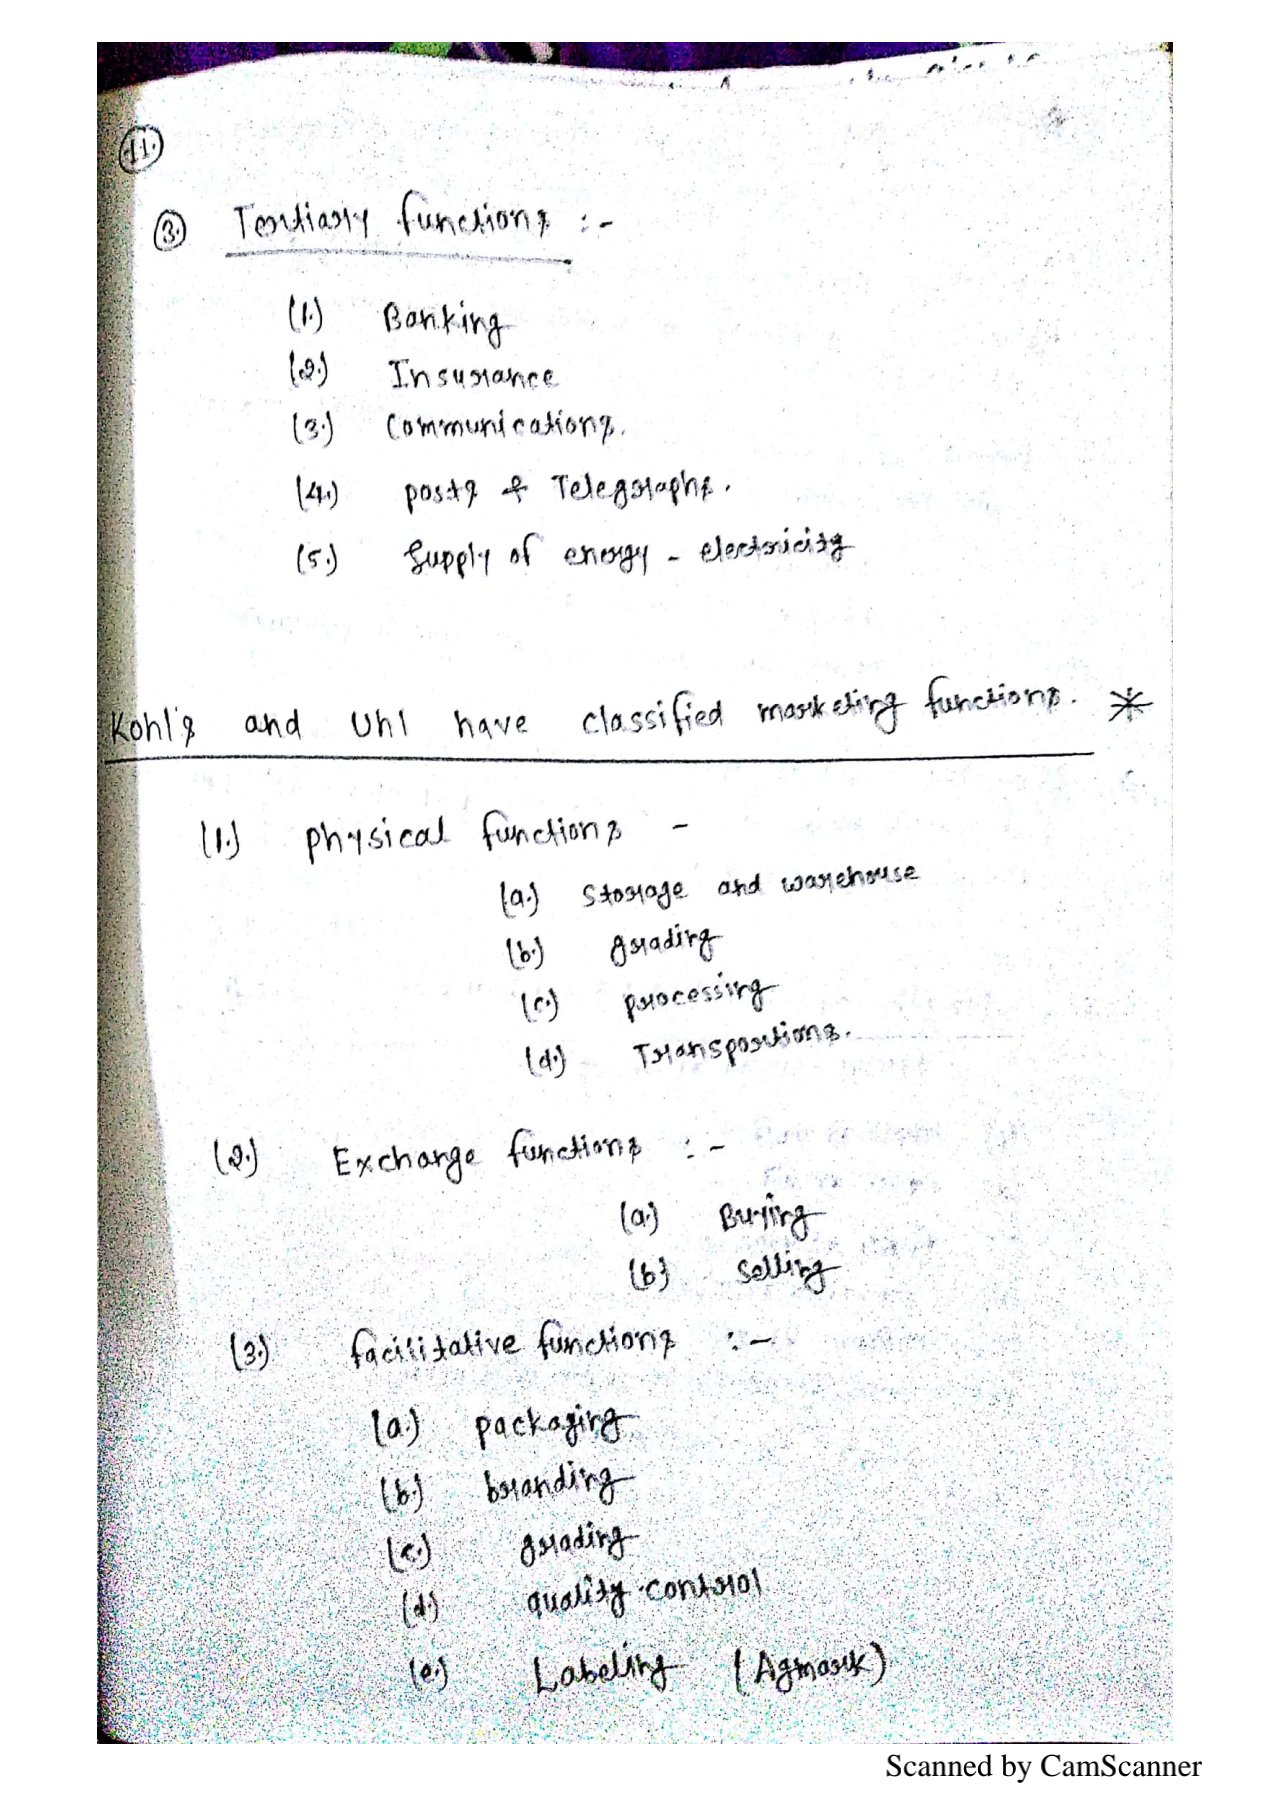 11.
3. Tertiary functions :-
(1.) Banking
(2.) Insurance
(3.) Communications.
(4.) posts & Telegraphs.
(5.) Supply of energy - electricity
Kohl's and Uhl have classified marketing functions. *
(1.) physical functions -
(a.) Storage and warehouse
(b.) grading
(c.) processing
(d.) Transportions.
(2.) Exchange functions :-
(a.) Buying
(b) Selling
(3.) facilitative functions :-
(a.) packaging
(b.) branding
(c.) grading
(d.) quality control
(e.) Labeling (Agmark)
Scanned by CamScanner